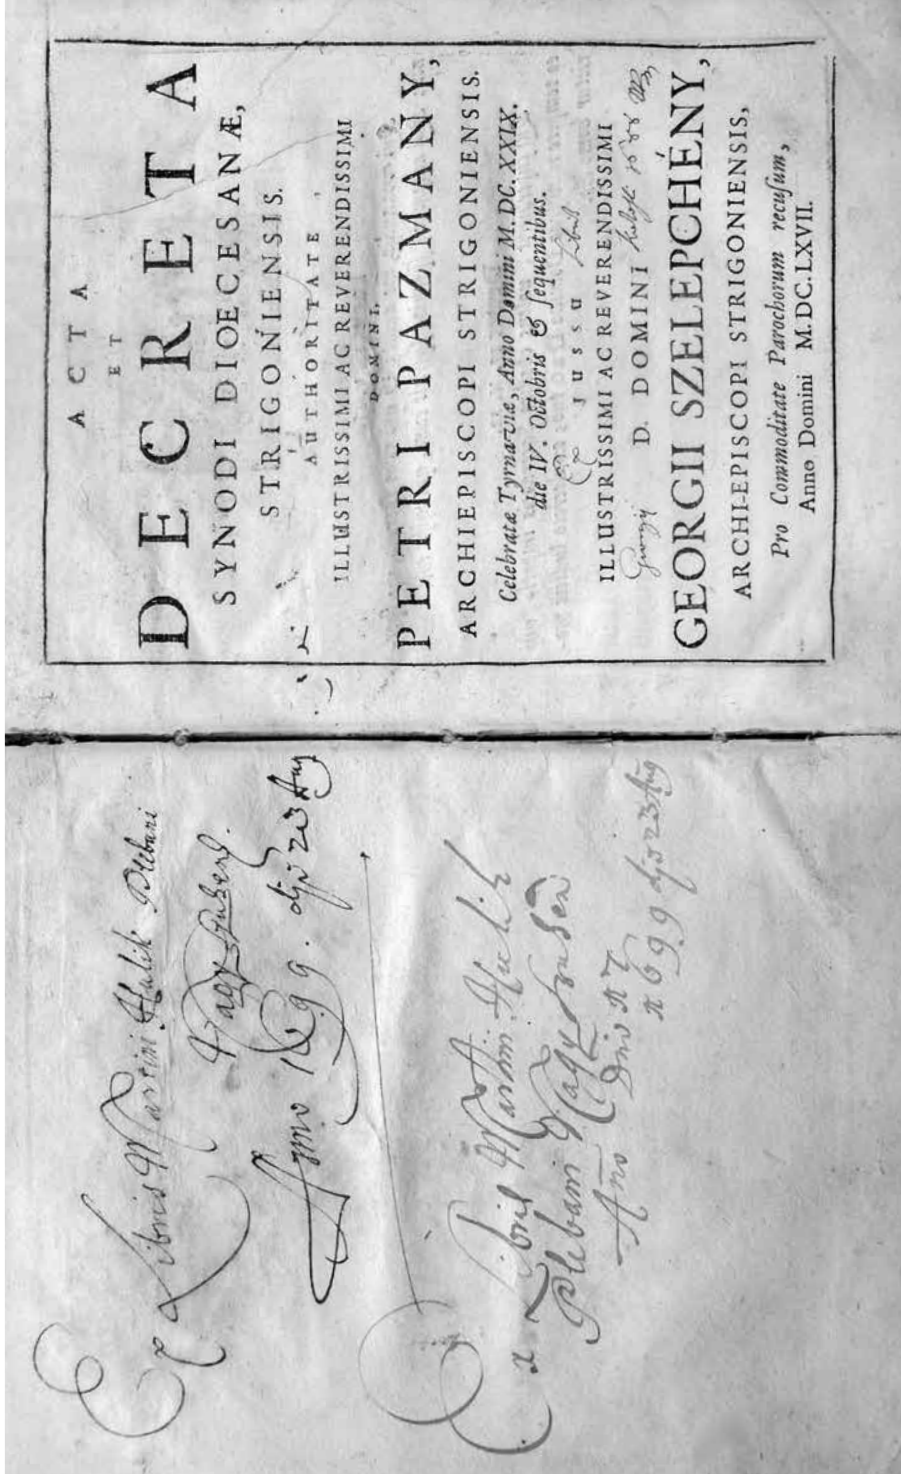 Ex Libris Martini Hulik Plebani
Nagy
Anno 1699. die 23 Aug
Ex Libris Martini Hulik
Plebani Nagy
Año Dni
1699 die 23 Aug
ACTA
ET
DECRETA
SYNODI DIOECESANÆ,
STRIGONIENSIS.
AUTHORITATE
ILLUSTRISSIMI AC REVERENDISSIMI
DOMINI,
PETRI PAZMANY,
ARCHIEPISCOPI STRIGONIENSIS.
Celebratæ Tyrnaviæ, Anno Domini M.DC.XXIX.
die IV. Octobris & ſequentibus.
Ex JUSSU Libris
ILLUSTRISSIMI AC REVERENDISSIMI
Georgii D. DOMINI
GEORGII SZELEPCHÉNY,
ARCHI-EPISCOPI STRIGONIENSIS,
Pro Commoditate Parochorum recuſum,
Anno Domini M.DC.LXVII.